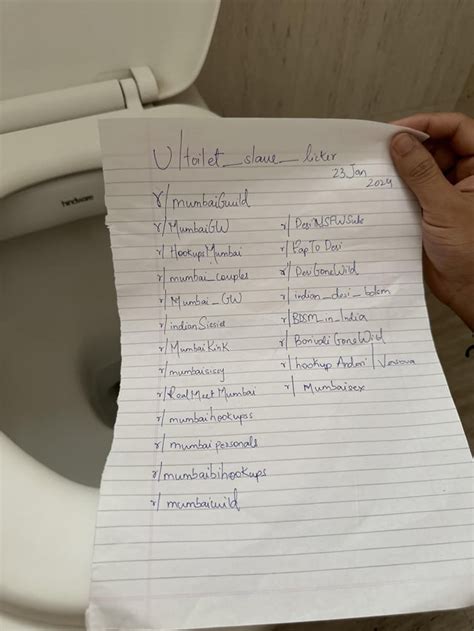 hindware
U/toilet_slave_licker
23 Jan
2024
r/mumbaiGuild
r/MumbaiGW
r/HookupsMumbai
r/mumbai_couples
r/Mumbai_GW
r/indianSissid
r/MumbaiKink
r/mumbaisissy
r/RealMeetMumbai
r/mumbaihookupss
r/mumbaipersonals
r/mumbaibihookups
r/mumbaiwild
r/DesiNSFWSub
r/FapTo Desi
r/DesiGoneWild
r/indian_desi_bdsm
r/BDSM_in_India
r/BorivaliGoneWild
r/hookup Andheri/Versova
r/Mumbaisex